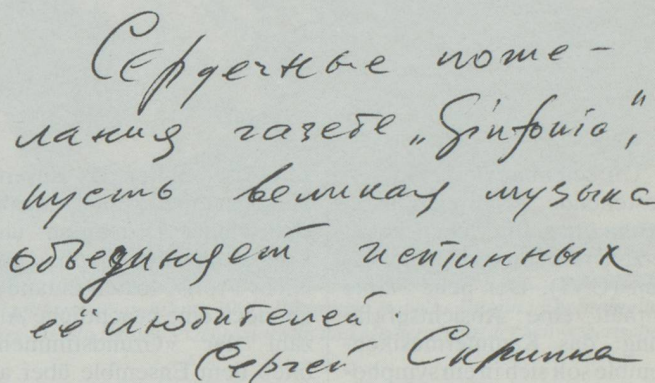 Сердечные поже-
лания газете „Sinfonia",
пусть великая музыка
объединяет истинных
её любителей
Сергей Скрипка